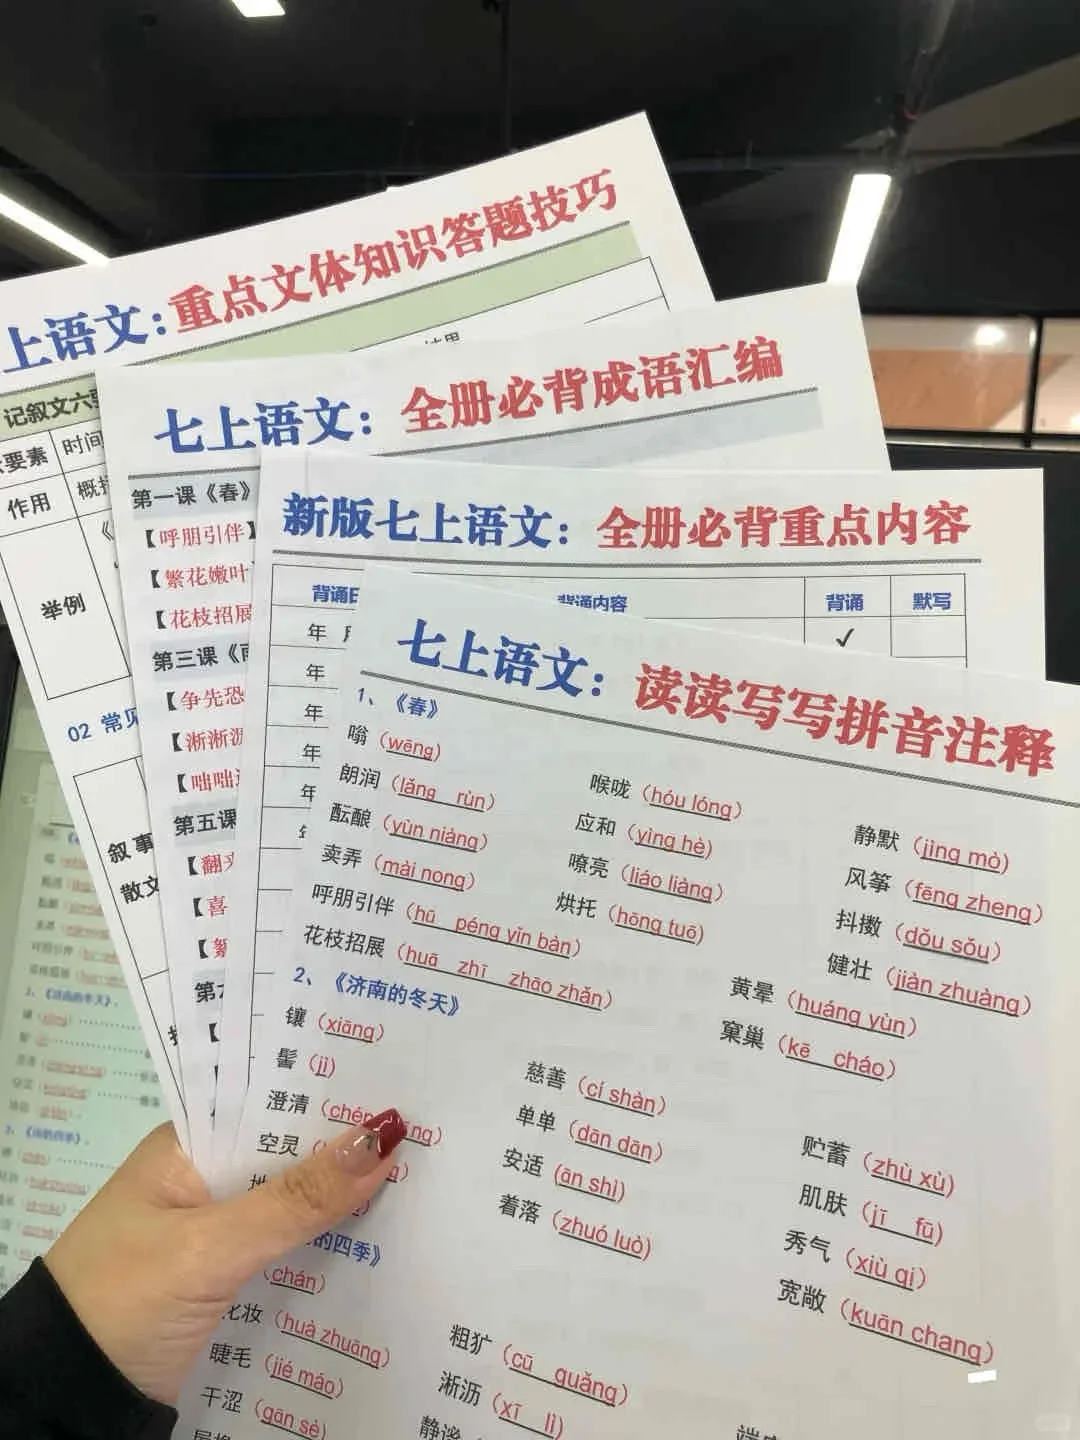 上语文：重点文体知识答题技巧
记叙文六要
要素 时间
作用
举例
02 常见
叙事
散文
七上语文：全册必背成语汇编
第一课《春》
【呼朋引伴】
【繁花嫩叶
【花枝招展
第三课《
【争先恐
【淅淅沥
【咄咄
第五课
【翻
【喜
【繁
新版七上语文：全册必背重点内容
背诵日 背诵内容 背诵 默写
年 ✓
年
年
年
年
七上语文：读读写写拼音注释
1、《春》
嗡（wēng）
朗润（lǎng rùn） 喉咙（hóu lóng） 静默（jìng mò）
酝酿（yùn niàng） 应和（yìng hè） 风筝（fēng zheng）
卖弄（mài nong） 嘹亮（liáo liàng） 抖擞（dǒu sǒu）
呼朋引伴（hū péng yǐn bàn） 烘托（hōng tuō） 健壮（jiàn zhuàng）
花枝招展（huā zhī zhāo zhǎn） 黄晕（huáng yùn）
窠巢（kē cháo）
2、《济南的冬天》
镶（xiāng）
髻（jì） 慈善（cí shàn） 贮蓄（zhù xù）
澄清（chéng
空灵 单单（dān dān） 肌肤（jī fū）
安适（ān shì） 秀气（xiù qi）
着落（zhuó luò） 宽敞（kuān chang）
的四季》
（chán）
化妆（huà zhuāng） 粗犷（cū guǎng）
睫毛（jié máo） 淅沥（xī lì）
干涩（gān sè） 静谧